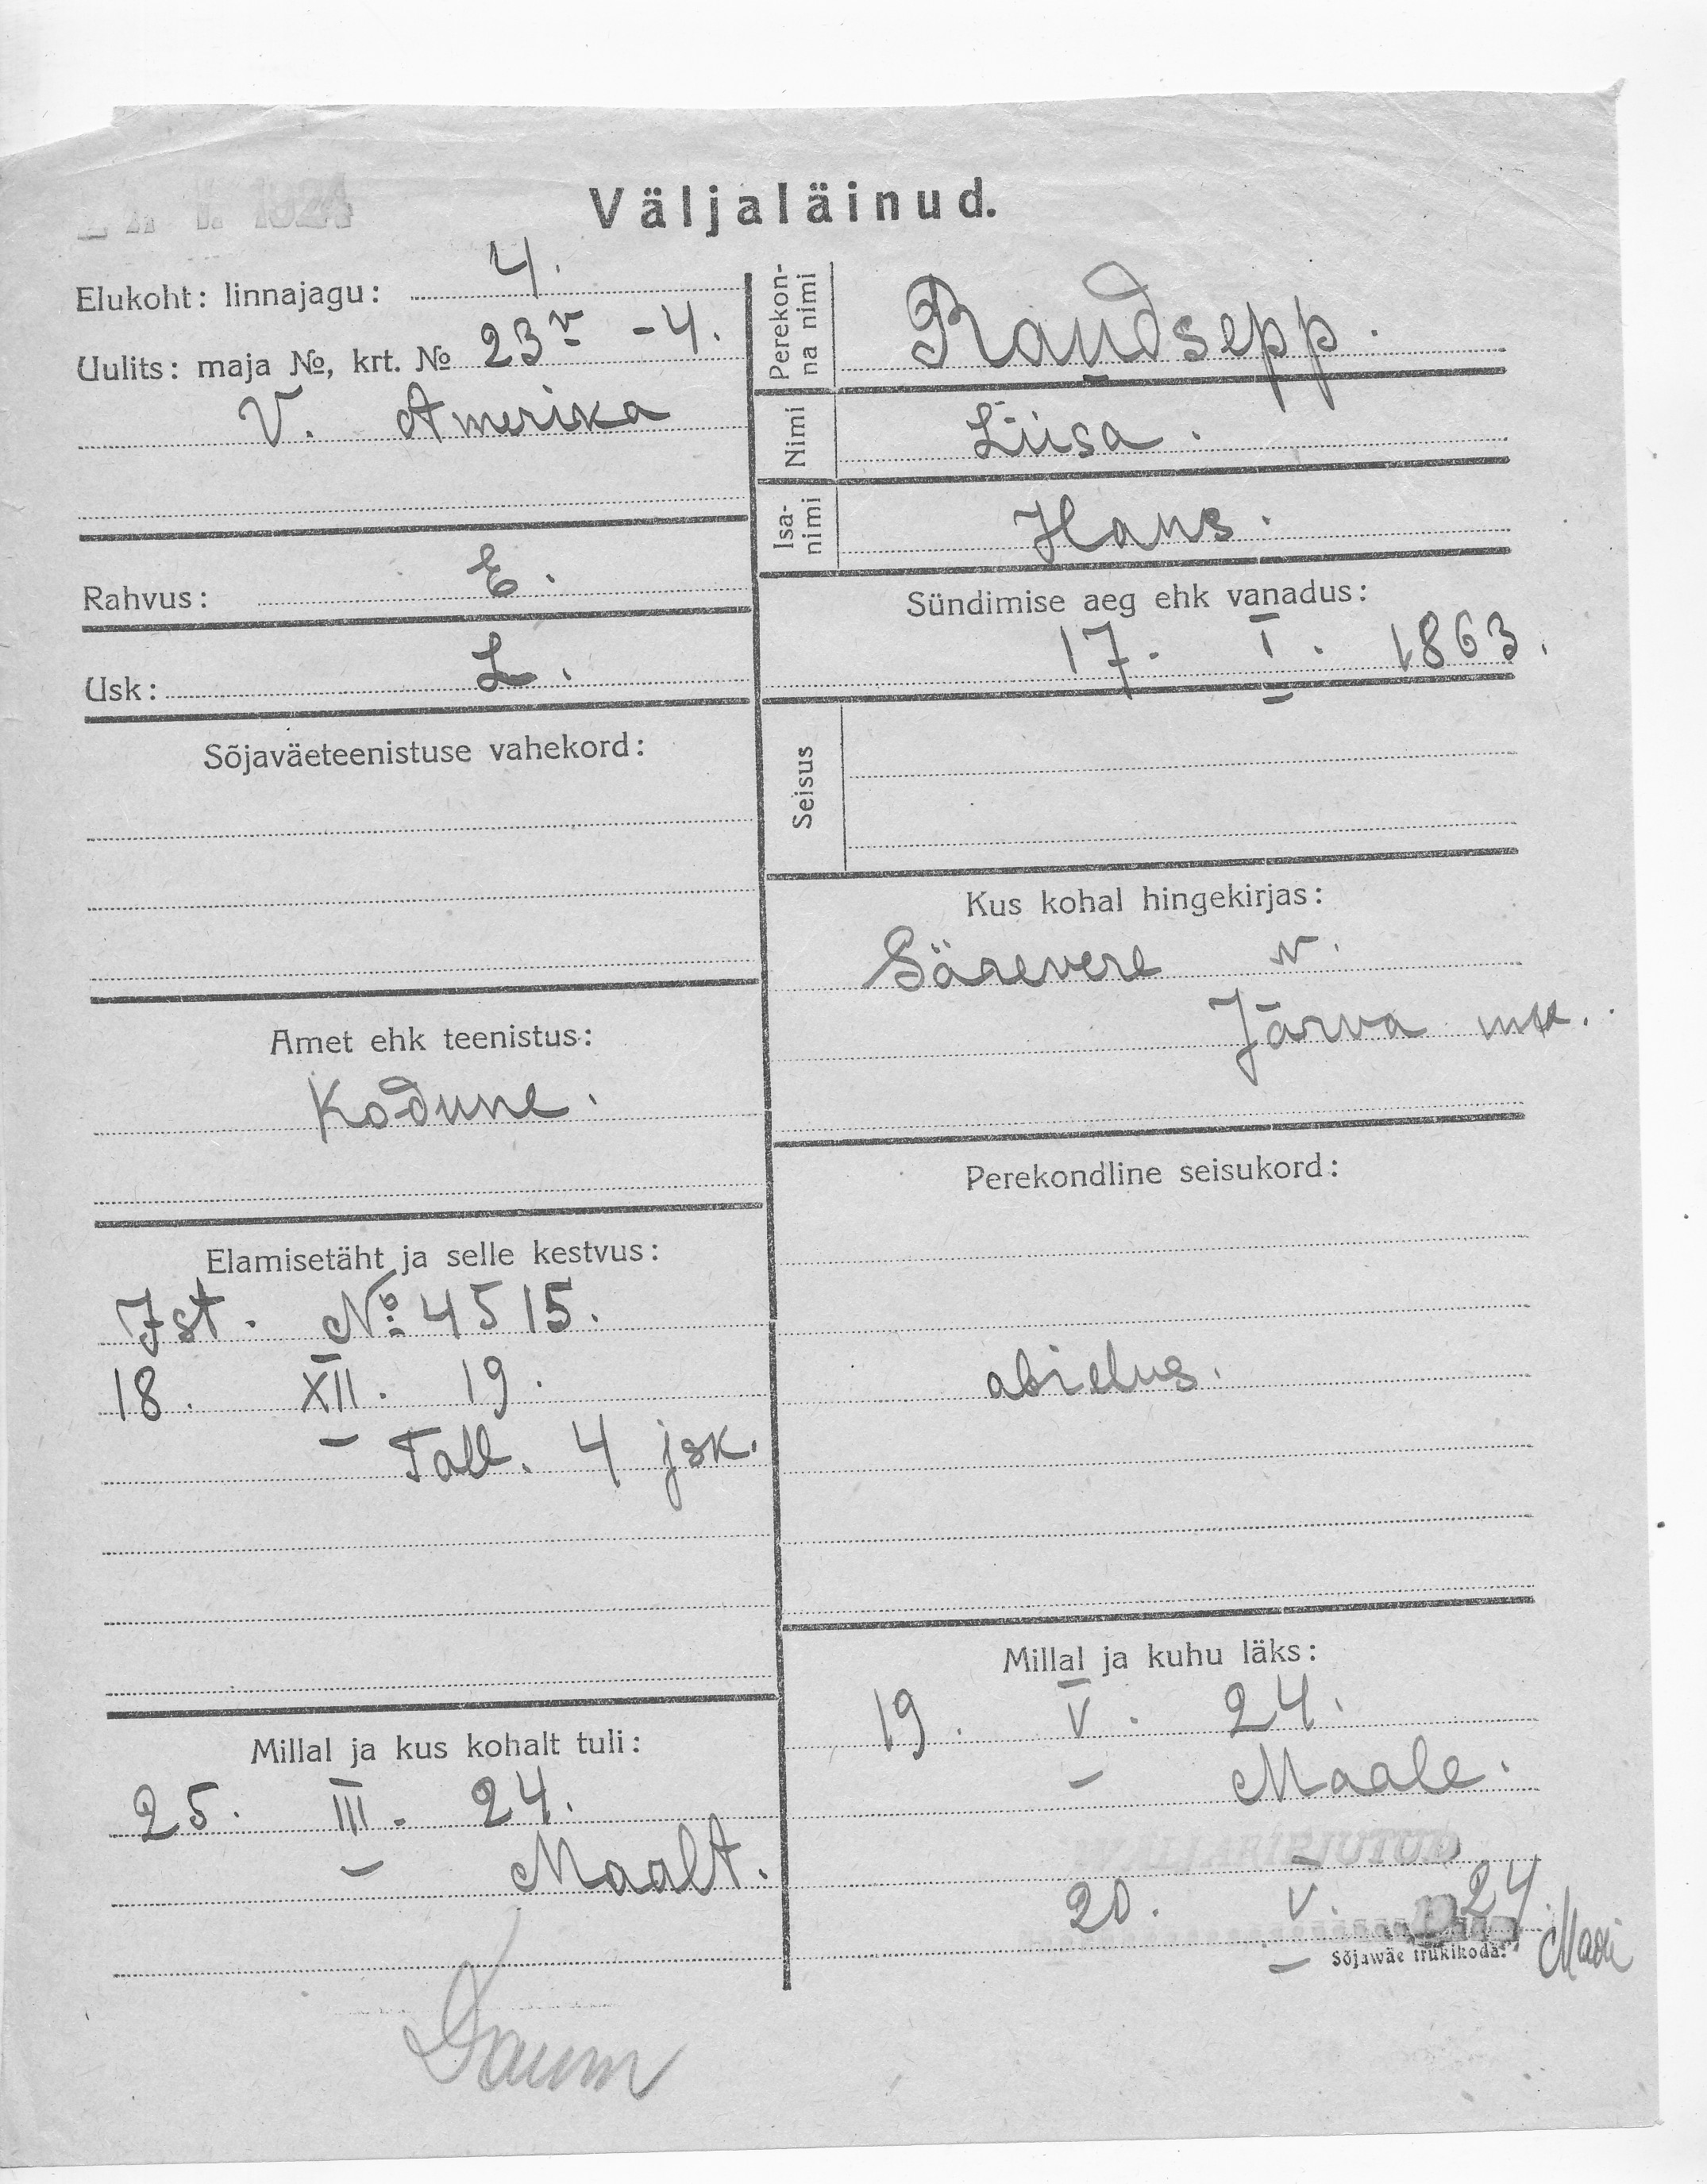 Väljaläinud.
1924
Elukoht: linnajagu: 4.
Uulits: maja №, krt. № 23 v - 4.
V. Amerika
Rahvus: E.
Usk: L.
Sõjaväeteenistuse vahekord:
Amet ehk teenistus:
Kodune.
Elamisetäht ja selle kestvus:
Ist. № 4515.
18. XII. 19.
Tall. 4 jsk.
Millal ja kus kohalt tuli:
25. III. 24.
Maalt.
Perekonna nimi
Raudsepp.
Nimi
Liisa.
Isanimi
Hans.
Sündimise aeg ehk vanadus:
17. I. 1863.
Seisus
Kus kohal hingekirjas:
Särevere v.
Järva mk.
Perekondline seisukord:
abielus.
Millal ja kuhu läks:
19. V. 24.
Maale.
VÄLJAKIRJUTUD
20. V. 24.
Sõjawäe trükikoda.